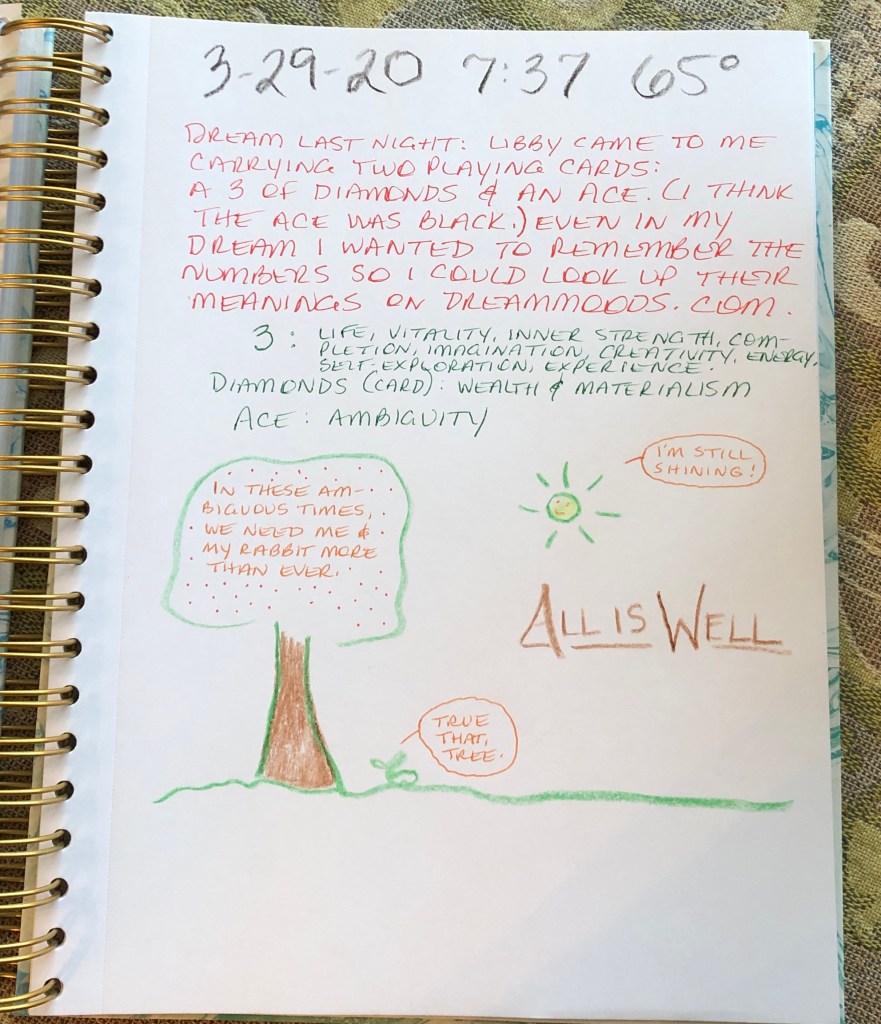 3-29-20 7:37 65°
DREAM LAST NIGHT: LIBBY CAME TO ME
CARRYING TWO PLAYING CARDS:
A 3 OF DIAMONDS & AN ACE. (I THINK
THE ACE WAS BLACK.) EVEN IN MY
DREAM I WANTED TO REMEMBER THE
NUMBERS SO I COULD LOOK UP THEIR
MEANINGS ON DREAMMOODS.COM.
3: LIFE, VITALITY, INNER STRENGTH, COM-
PLETION, IMAGINATION, CREATIVITY, ENERGY,
SELF-EXPLORATION, EXPERIENCE.
DIAMONDS (CARD): WEALTH & MATERIALISM
ACE: AMBIGUITY
I'M STILL
SHINING!
IN THESE AM-
BIGUOUS TIMES,
WE NEED ME &
MY RABBIT MORE
THAN EVER.
ALL IS WELL
TRUE
THAT,
TREE.